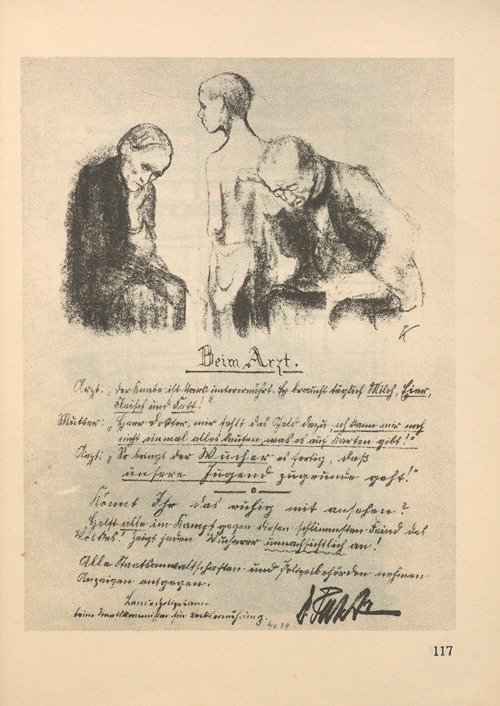 Beim Arzt.
Arzt: „Der Knabe ist stark unterernährt. Er braucht täglich Milch, Eier,
Fleisch und Fett!"
Mutter: „Herr Doktor, mir fehlt das Geld dazu, ich kann mir noch
nicht einmal alles kaufen, was es auf Karten gibt!"
Arzt: „So bringt der Wucher es fertig, daß
unsere Jugend zugrunde geht!"
Könnt Ihr das ruhig mit ansehen?
Helft alle im Kampf gegen diesen schlimmsten Feind des
Volkes! Zeigt jeden Wucherer unnachsichtlich an!
Alle Staatsanwaltschaften und Polizeibehörden nehmen
Anzeigen entgegen.
Landespolizeiamt
beim Staatskommissar für Volksernährung.
117